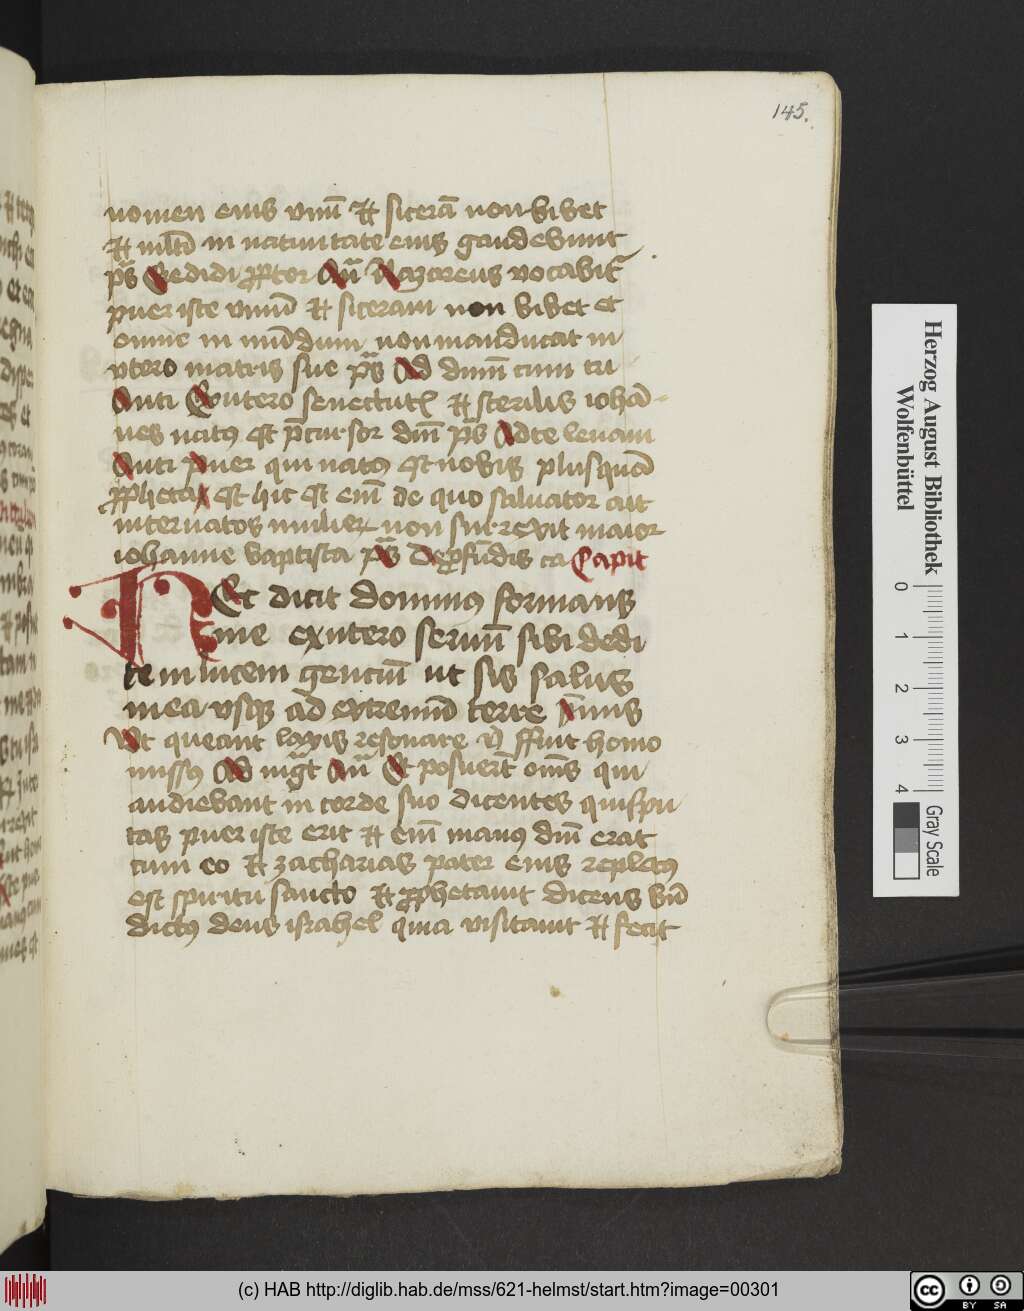 145.
nomen eius vinū et sicerā non bibet
et mlti in natiuitate eius gaudebunt
ps Credidi propter Añ Nazoreus vocabit
puer iste vinū et siceram non bibet et
omne in mūdum non manducat in
vtero matris sue ps Ad dnm cum tu
Anti Ex vtero senectut et sterilis iohā-
nes natus est pcursor dnī ps Ad te leuaui
Anti puer qui natus est nobis plusquā
propheta est hic est em de quo saluator ait
inter natos mulier non surrexit maior
iohanne baptista ps De profundis ca Capit
Et dicit dominus formans
me ex vtero seruū sibi dedi
te in lucem genciū ut sis salus
mea vsque ad extremū terre
Vt queant laxis resonare ffuit homo
missus Ad mgt Añ Et posuert oms qui
audiebant in corde suo dicentes quis pu
tas puer iste erit et em manus dnī erat
cum eo et zacharias pater eius repletus
est spiritu sancto et prophetauit dicens bn̄
dictus deus israhel quia visitauit et fecit
Herzog August Bibliothek
Wolfenbüttel
0 1 2 3 4
Gray Scale
(c) HAB http://diglib.hab.de/mss/621-helmst/start.htm?image=00301
cc BY SA